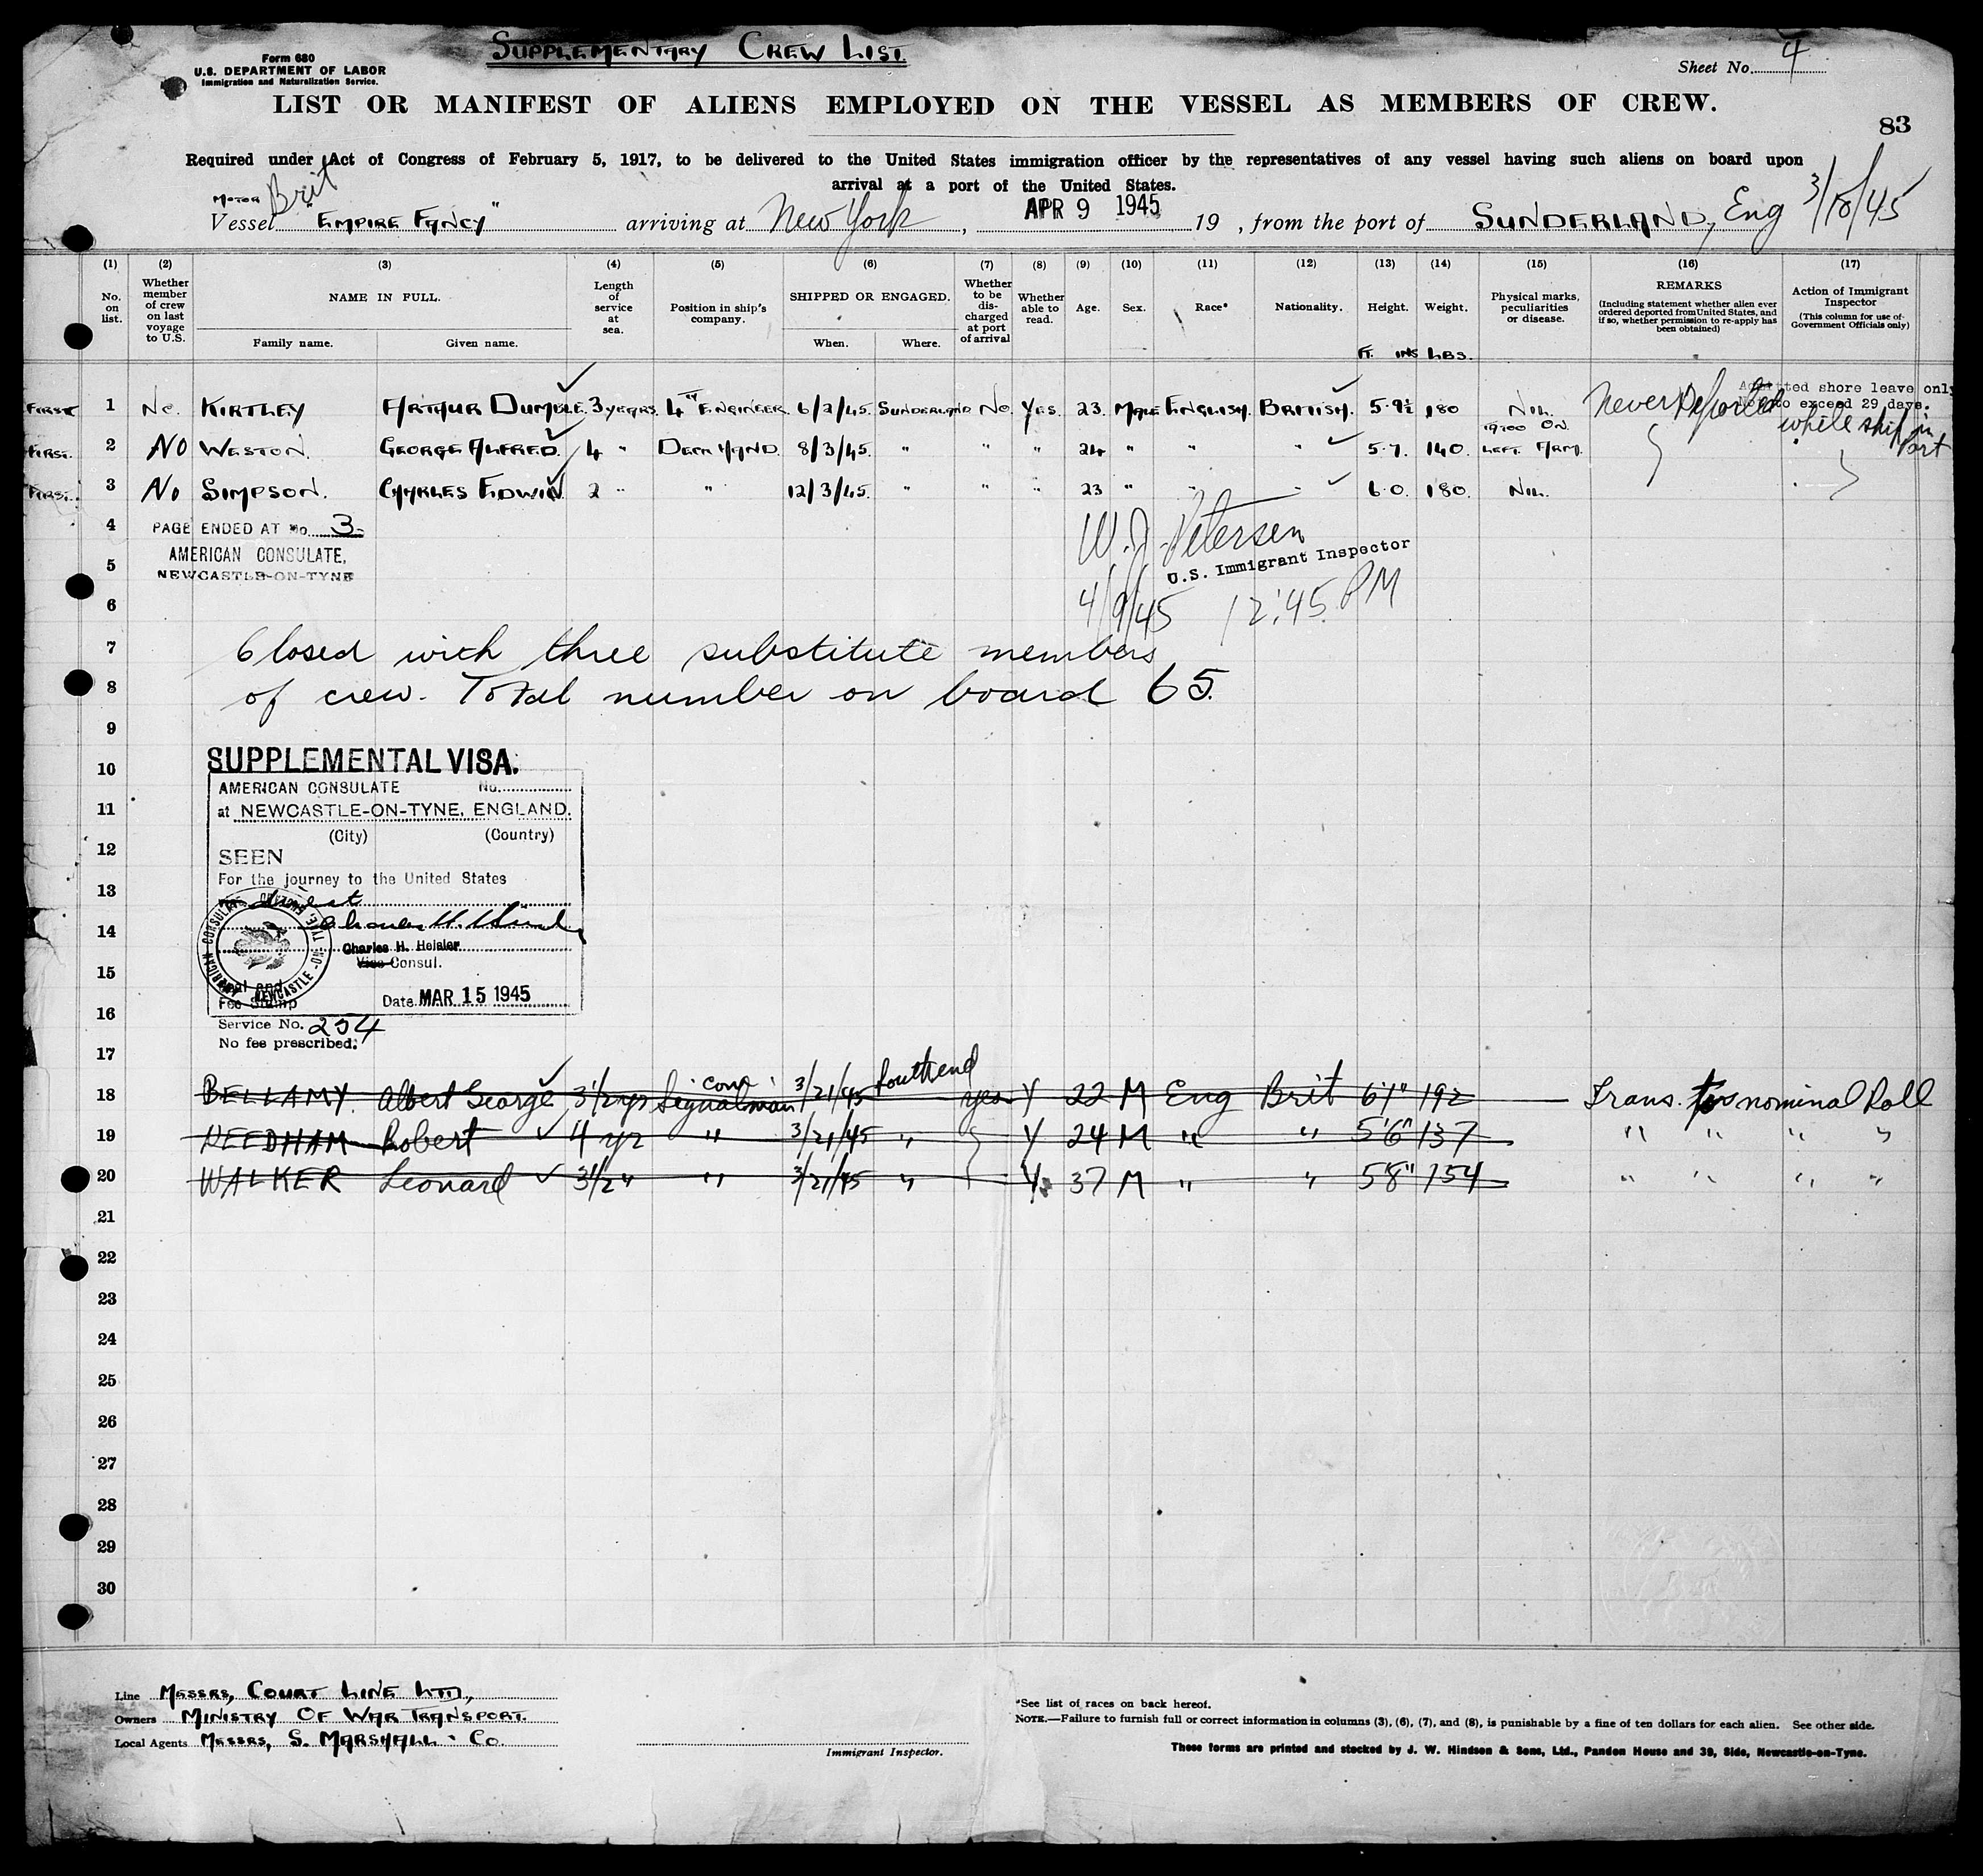 SUPPLEMENTARY CREW LIST.
Form 680
U.S. DEPARTMENT OF LABOR
Immigration and Naturalization Service.
Sheet No. 4
LIST OR MANIFEST OF ALIENS EMPLOYED ON THE VESSEL AS MEMBERS OF CREW.
83
Required under Act of Congress of February 5, 1917, to be delivered to the United States immigration officer by the representatives of any vessel having such aliens on board upon
arrival at a port of the United States.
MOTOR Brit
Vessel "EMPIRE FANCY" arriving at New York, APR 9 1945 19 , from the port of SUNDERLAND, Eng 3/18/45
(1) (2) (3) (4) (5) (6) (7) (8) (9) (10) (11) (12) (13) (14) (15) (16) (17)
No. on list. Whether member of crew on last voyage to U.S. NAME IN FULL. Family name. Given name. Length of service at sea. Position in ship's company. SHIPPED OR ENGAGED. When. Where. Whether to be discharged at port of arrival Whether able to read. Age. Sex. Race* Nationality. Height. Weight. Physical marks, peculiarities or disease. REMARKS (Including statement whether alien ever ordered deported from United States, and if so, whether permission to re-apply has been obtained) Action of Immigrant Inspector (This column for use of Government Officials only)
FT. INS LBS.
Admitted shore leave only
Not to exceed 29 days.
while ship in Port
FIRST 1 No. KIRTLEY ARTHUR DUMBLE. 3 YEARS. 4TH ENGINEER. 6/2/45. SUNDERLAND No. YES. 23. MALE ENGLISH. BRITISH. 5·9½ 180 NIL. Never Deported
FIRST. 2 NO WESTON. GEORGE ALFRED. 4 " DECK HAND. 8/3/45. " " " 24 " " " 5·7. 140. TATTOO ON LEFT ARM.
FIRST. 3 NO SIMPSON. CHARLES EDWIN 2 " " 12/3/45. " " " 23 " " " 6·0. 180. NIL.
4 PAGE ENDED AT No. 3
AMERICAN CONSULATE,
5 NEWCASTLE-ON-TYNE
W. J. Petersen
U.S. Immigrant Inspector
6 4/9/45 12:45 PM
7 Closed with three substitute members
8 of crew. Total number on board 65.
9
SUPPLEMENTAL VISA.
10 AMERICAN CONSULATE No.
11 at NEWCASTLE-ON-TYNE, ENGLAND.
(City) (Country)
12 SEEN
For the journey to the United States
13
14 Charles H. Heisler
15 Vice Consul.
AMERICAN CONSULATE NEWCASTLE-ON-TYNE, ENGLAND
Seal and
Fee Stamp Date MAR 15 1945
16 Service No. 254
No fee prescribed.
17
18 BELLAMY. Albert George 3½ yrs Conv. Signalman 3/21/45 Southend yes Y 22 M Eng Brit 6'1" 192 Trans. to nominal Roll
19 NEEDHAM Robert 4 yr " 3/21/45 " Y 24 M " " 5'6" 137 " " " "
20 WALKER Leonard 3½ " " 3/21/45 " Y 37 M " " 5'8" 154 " " " "
21
22
23
24
25
26
27
28
29
30
Line MESSRS, COURT LINE LTD.,
Owners MINISTRY OF WAR TRANSPORT.
Local Agents MESSRS, S. MARSHALL · CO.
Immigrant Inspector.
*See list of races on back hereof.
NOTE.—Failure to furnish full or correct information in columns (3), (6), (7), and (8), is punishable by a fine of ten dollars for each alien. See other side.
These forms are printed and stocked by J. W. Hindson & Sons, Ltd., Pandon House and 39, Side, Newcastle-on-Tyne.